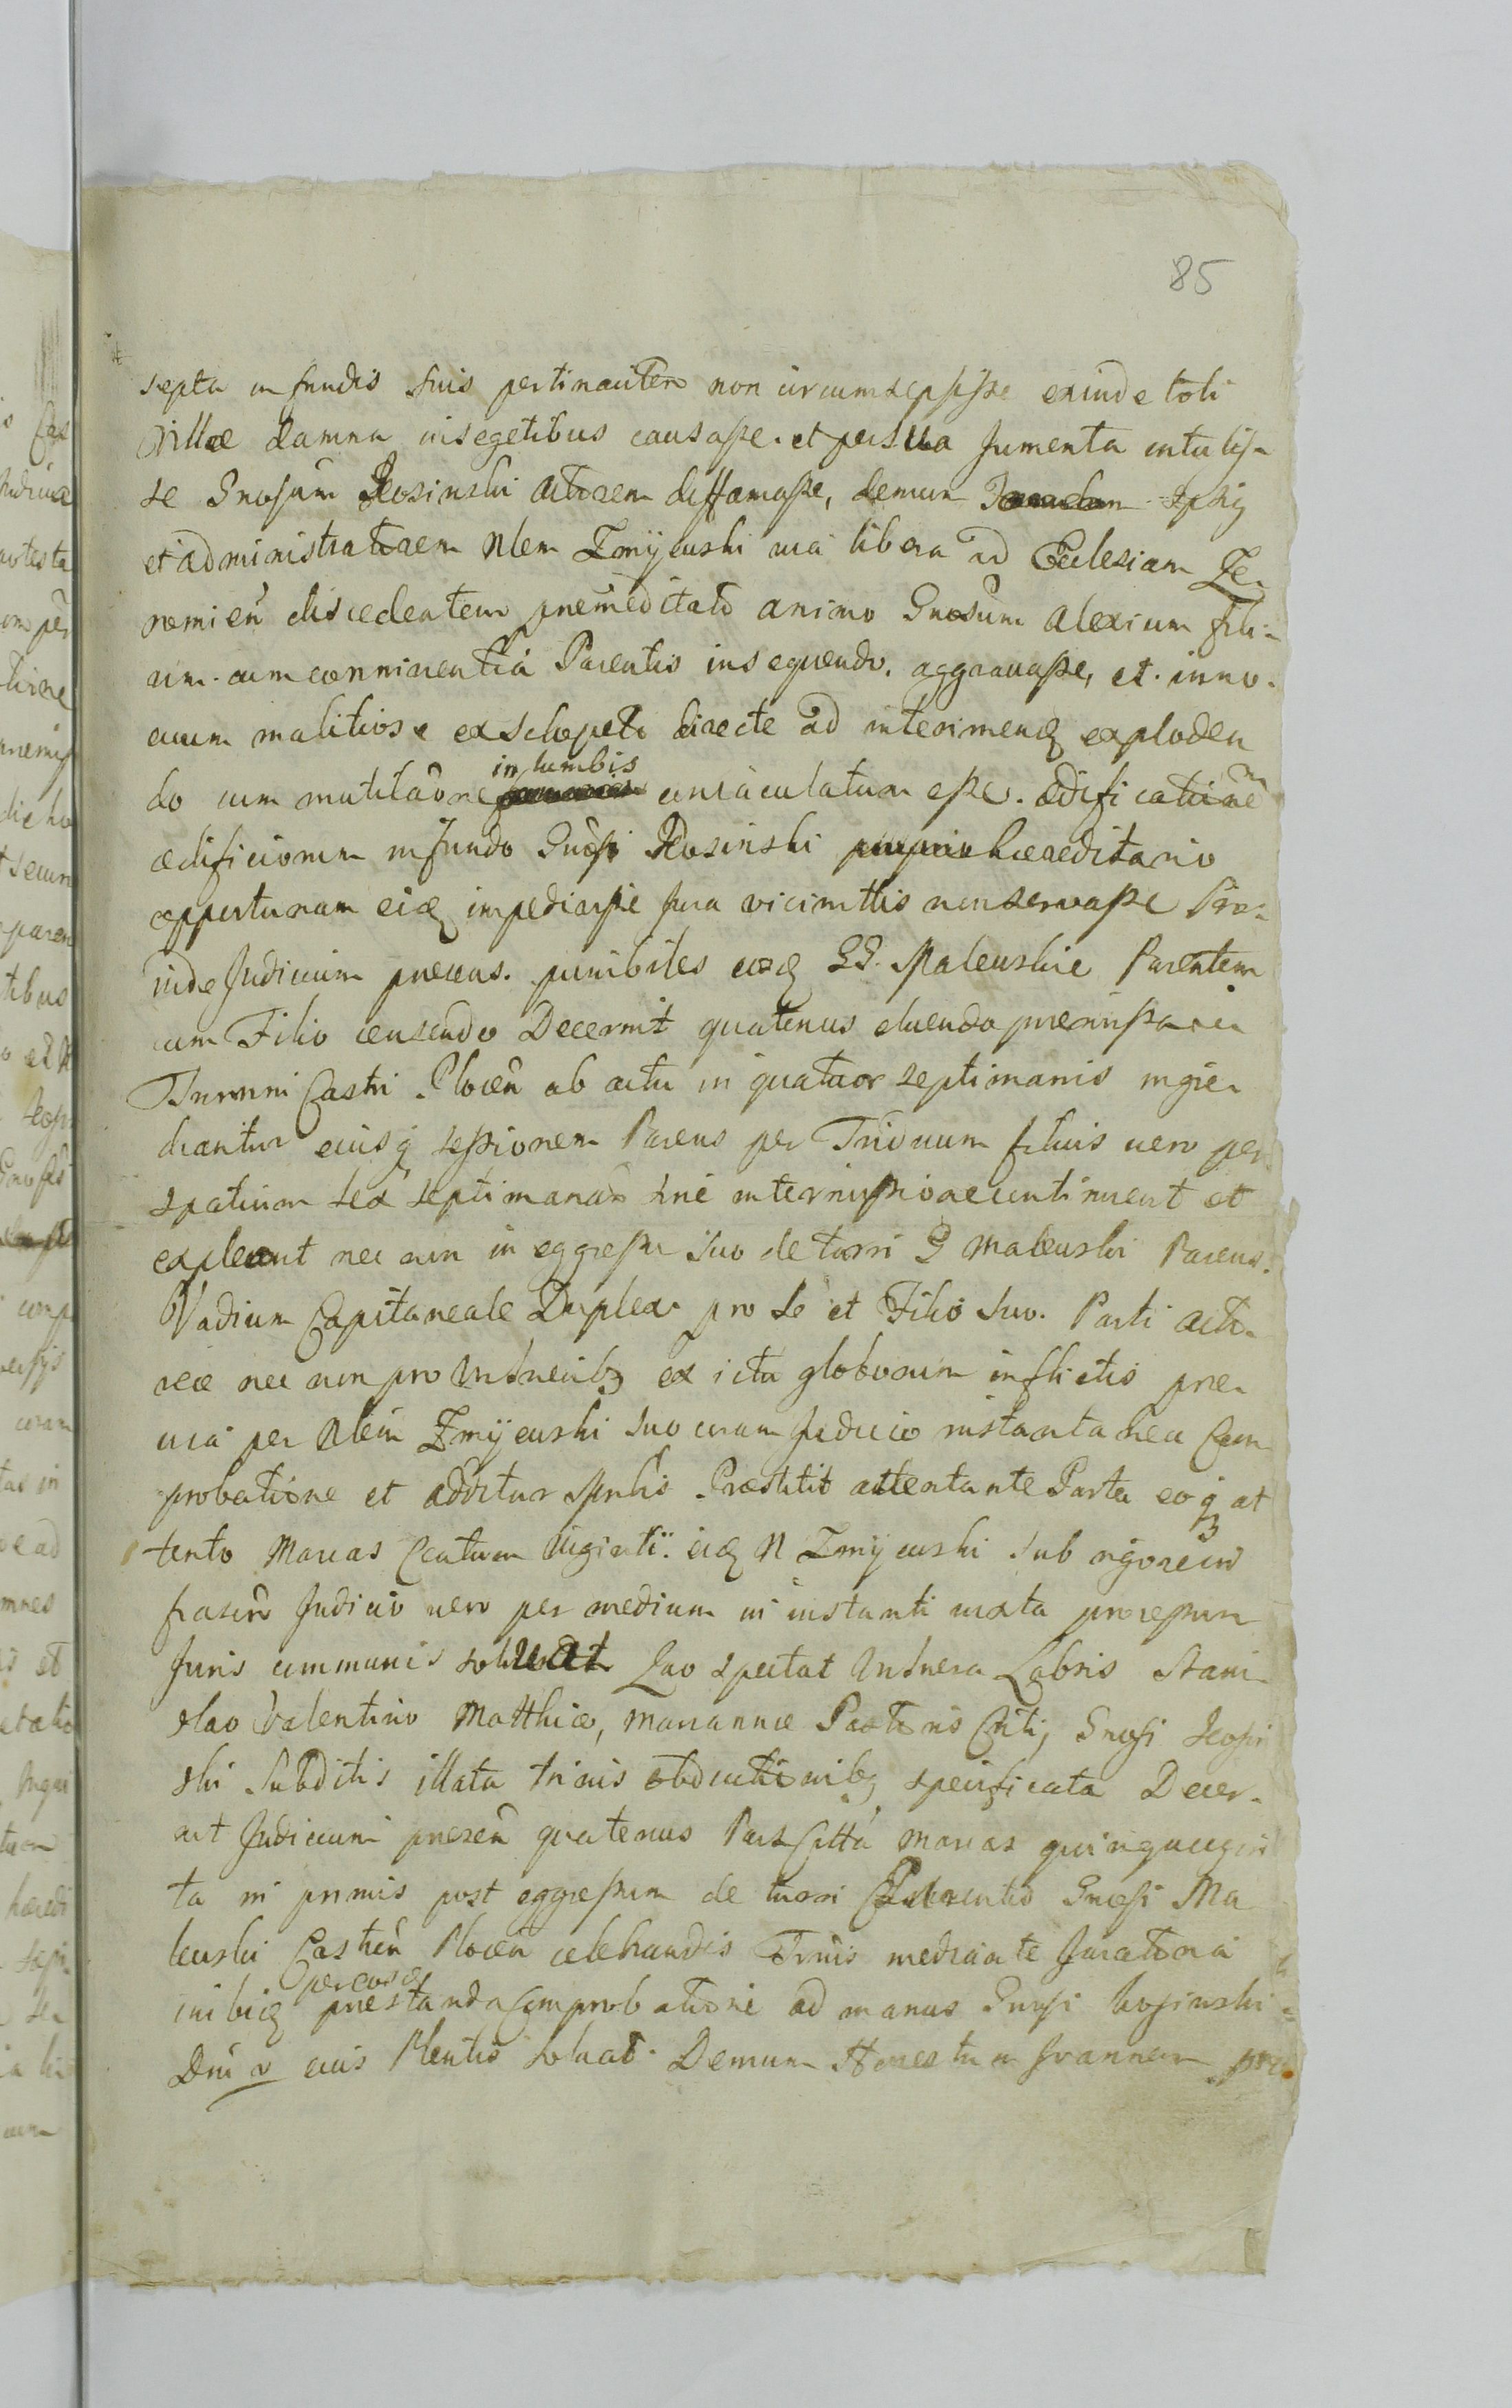 85
septa in fundis suis pertinaciter non circumsepsisse exinde toti
Villæ damna in segetibus causasse. et per sua Jumenta intulis-
se Gnosum Kosinski Actorem diffamasse, demum ipsiq
et administratorem Nlem Zmijewski via libera ad Ecclesiam Ze-
romien discedentem præmeditato animo Gnosum Alexium fili-
um. cum conniventia Parentis insequendo. aggravasse, et. inno-
cuum malitiose ex sclopeto directe ad interimend explodен
do cum mutilaone in lumbis esse. ædificationem
ædificiorum in fundo Gnosi Kosinski proprio hæreditario
opportunam eidq impedivisse Jura vicinittis non servasse Pro-
inde Judicium præsens. punibiles eosd GG. Malewskie Parentem
cum Filio censendo Decernit quatenus eluendo præmissa
Turrim Castri Plocen ab actu in quatuor septimanis ingre-
diantur eiusq sessionem Parens per Triduum filius vero per
spatium sex septimanar sine intermissione contineant et
expleant nec non in eggressu suo de turri G Malewski Parens.
Vadium Capitaneale Duplex pro se et Filio suo. Parti Acto-
reæ nec non pro Vulneribq ex ictu globorum inflictis præ-
via per Nlem Zmijewski suo coram Judicio instantanea Com
probatione et additur Spnlis Præstitit attentante Parte eoq at
tento Marcas Centum viginti. eidq N Zmijewski sub rigoreiur
frascen Judicio vero per medium in instanti iuxta præscssum
Juris communis solveat Quo spectat Vulnera Labris Stani-
slao Valentino Matthiæ, Mariannæ Pastoris Gnosi Kosin
ski Subditis illata trinis obductionibq specificata Decer-
nit Judicium præsen quatenus Pars Citta Marcas quinquagin
ta in primis post eggressum de turri Parentis Gnosi Ma
lewski Castren Plocen celebrandis Trmis mediante Juratoria
inibiq per eosd præstanda Comprobatione ad manus Gnosi Kosinski
Dni v eius Plentis solvat. Demum Honestum Joannem præ